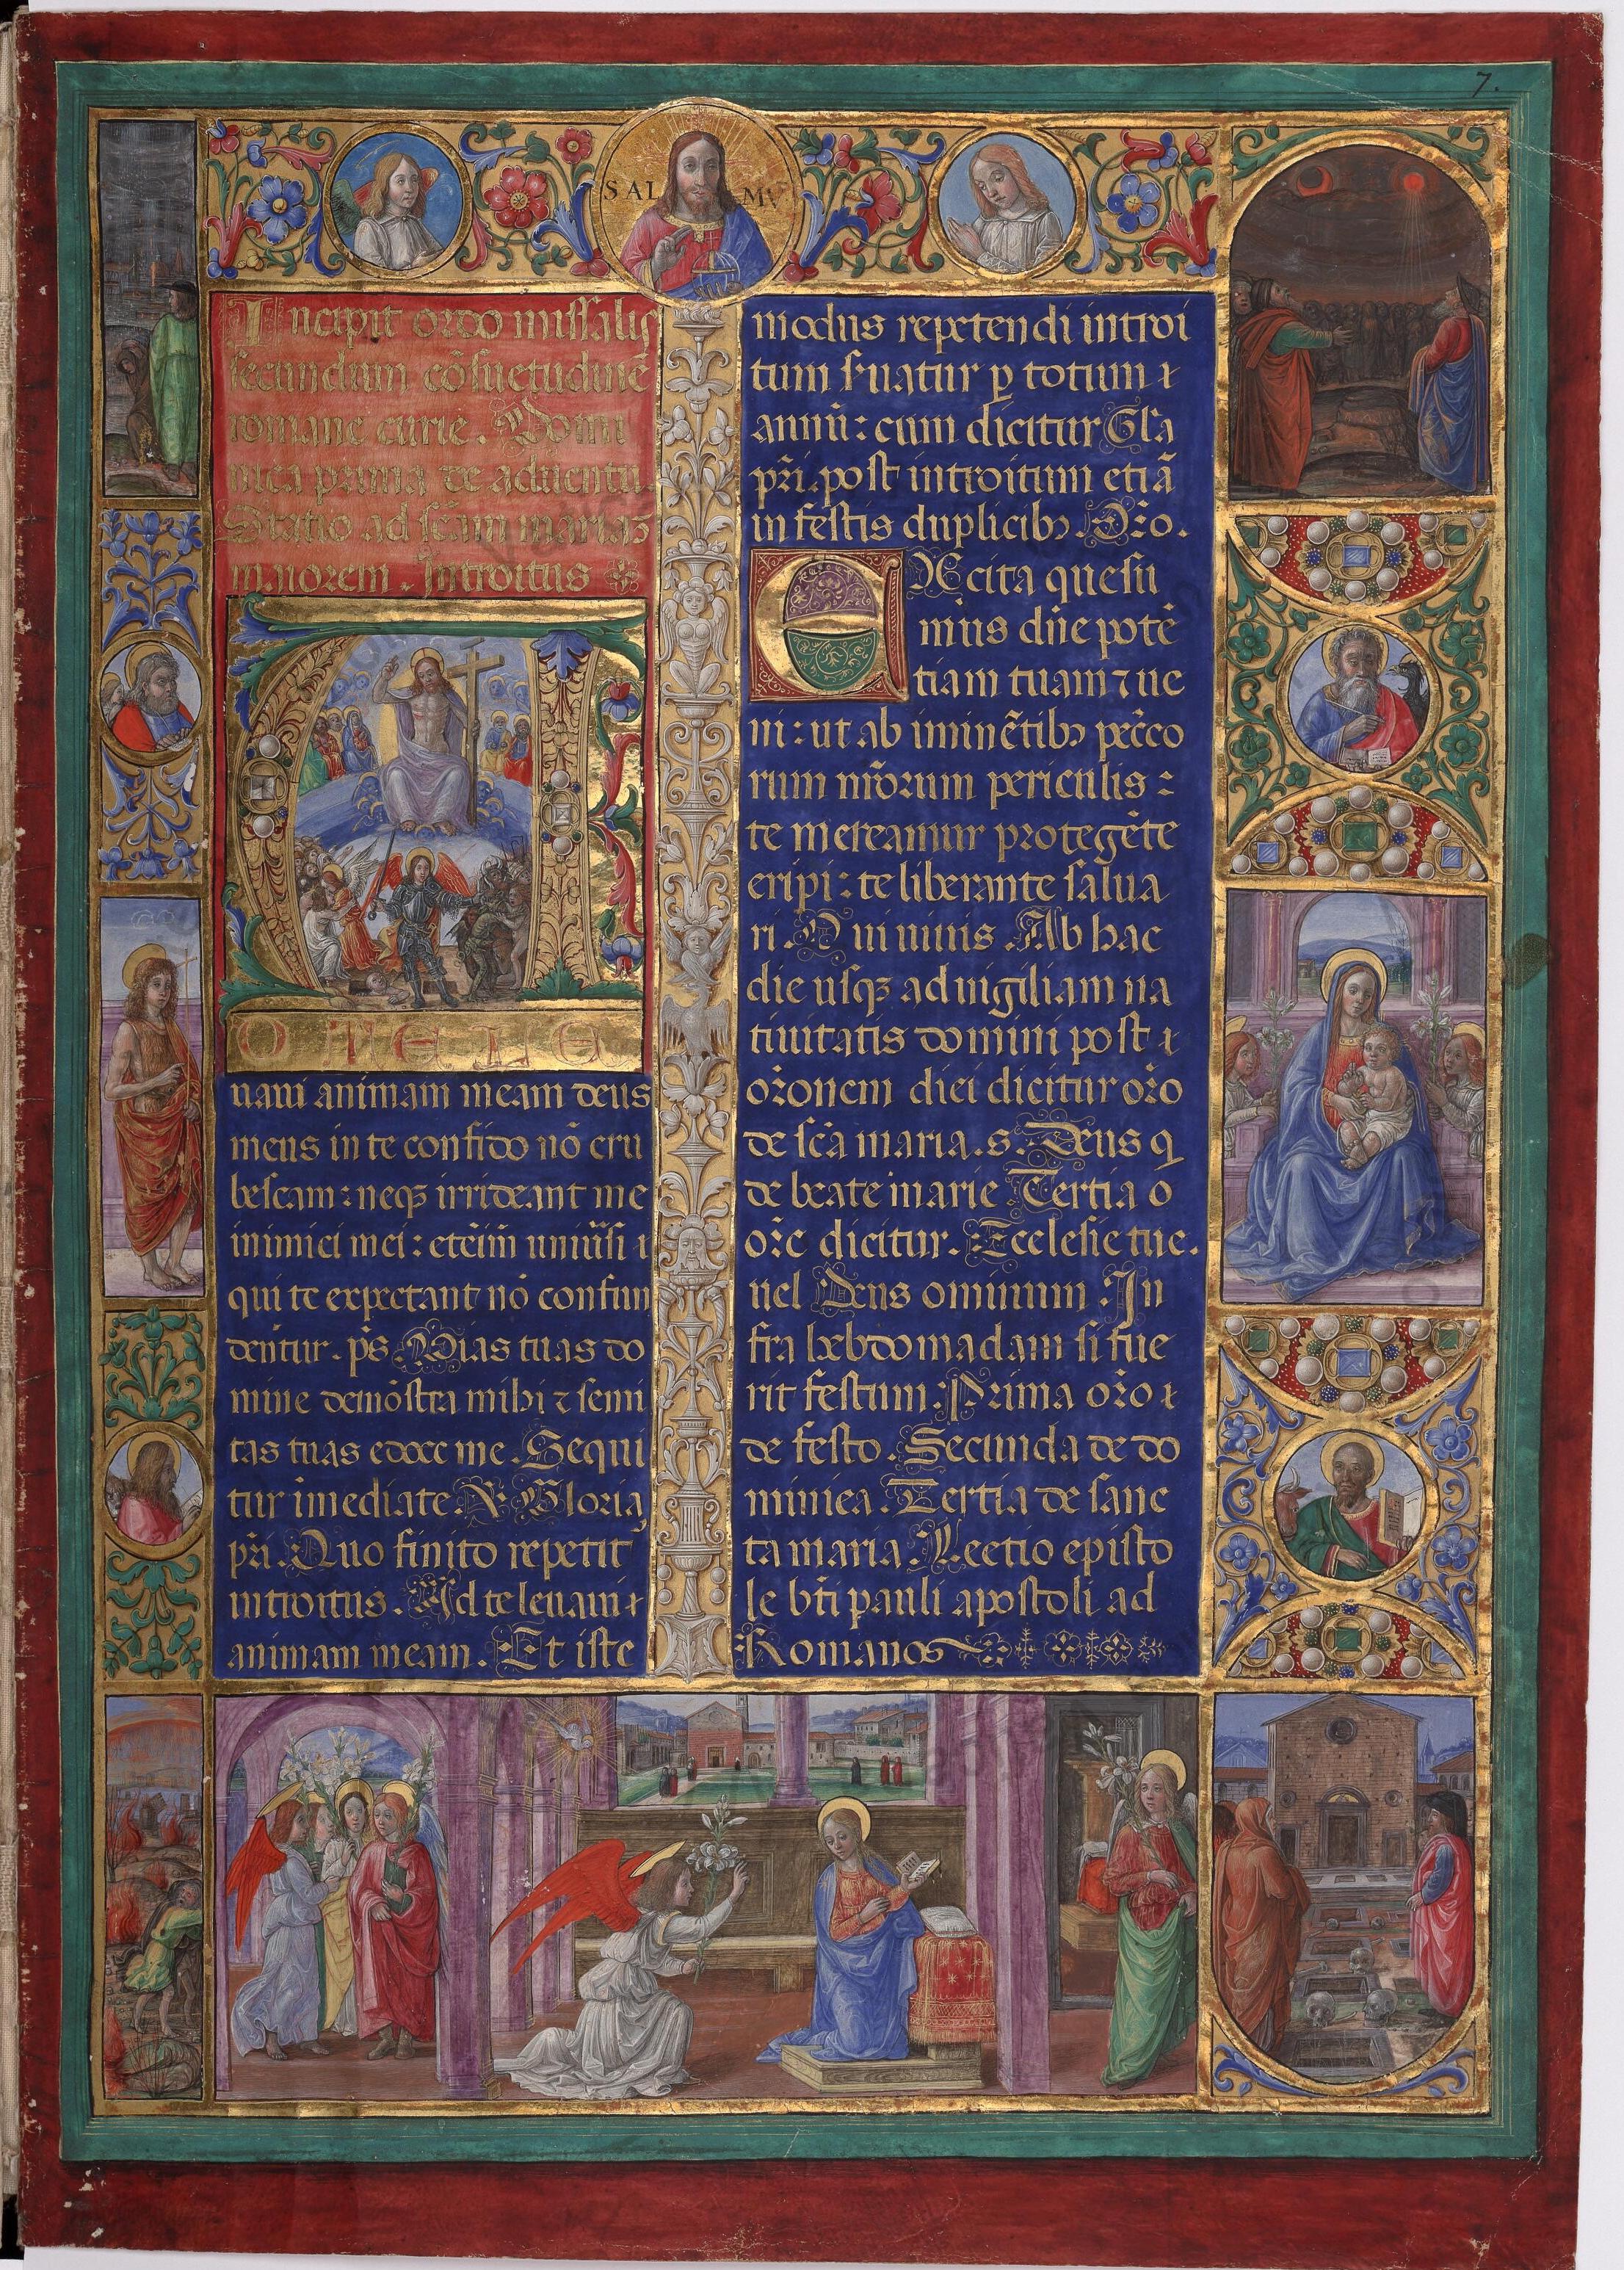 7.
SAL MV
Incipit ordo missalis
secundum cōsuetudinē
romane curie. Domi
nica prima de aduentu.
Statio ad scām mariaꝫ
maiorem. Introitus
A
D TE LE
uaui animam meam deus
meus in te confido nō eru
bescam: neqꝫ irrideant me
inimici mei: etēim uniūsi
qui te expectant nō confun
dentur. ps̄ Vias tuas do
mine demōstra mihi ⁊ semi
tas tuas edoce me. Sequi
tur īmediate ℣ Gloria
pr̄i. Quo finito repetit
introitus. Ad te leuaui
animam meam. Et iste
modus repetendi introi
tum ſuatur ꝑ totum
annū: cum dicitur Glā
pr̄i. post introitum etiā
in festis duplicibꝫ. Or̄o.
EXcita quesu
mus dn̄e potē
tiam tuam ⁊ ue
ni: ut ab iminētibꝫ pecc̄o
rum nr̄orum periculis:
te mereamur protegēte
eripi: te liberante salua
ri. Qui uiuis. Ab hac
die usqꝫ ad uigiliam na
tiuitatis domini post
or̄onem diei dicitur or̄o
de scā maria. s. Deus q
de beate marie Tertia o
or̄e dicitur. Ecclesie tue.
uel Deus omnium. In
fra hebdomadam si fue
rit festum: Prima or̄o
de festo. Secunda de do
minica. Tertia de sanc
ta maria. Lectio episto
le bt̄i pauli apostoli ad
Romanos